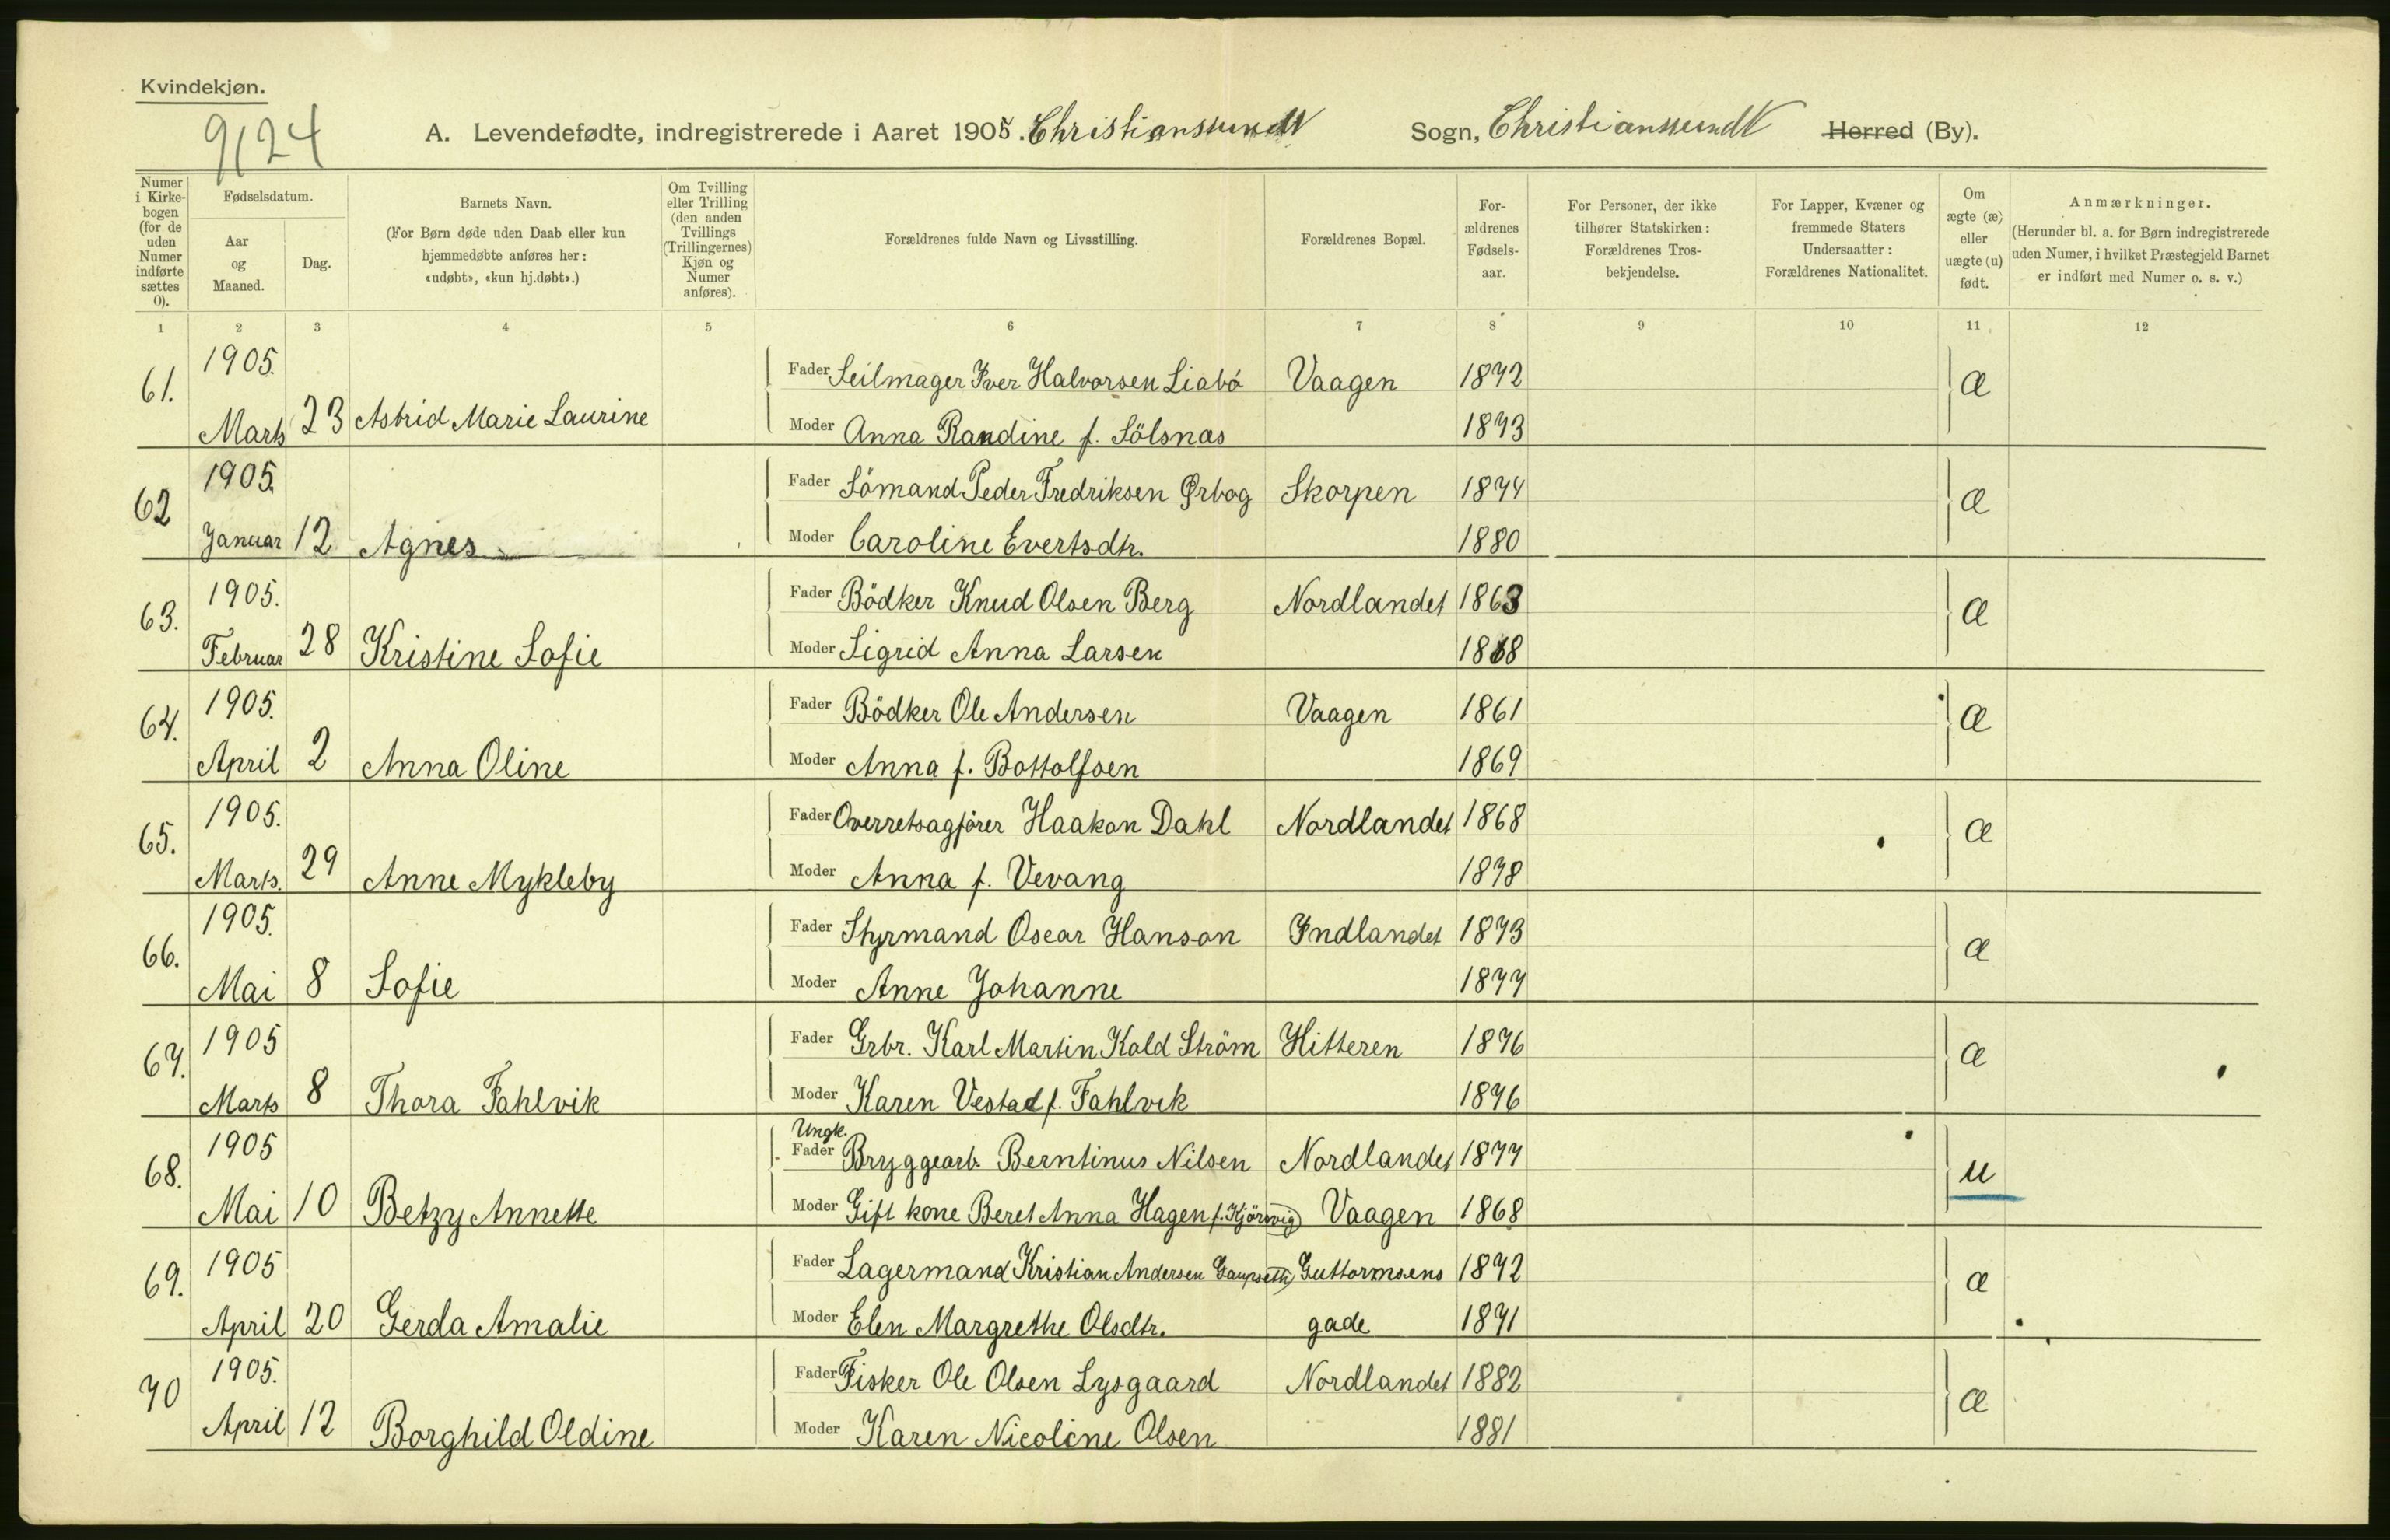 Kvindekjøn.
9124
A. Levendefødte, indregistrerede i Aaret 1905. Christianssund N Sogn, Christianssund N Herred (By).
Numer i Kirkebogen (for de uden Numer indførte sættes 0).
Fødselsdatum.
Aar og Maaned.
Dag.
Barnets Navn.
(For Børn døde uden Daab eller kun hjemmedøbte anføres her: «udøbt», «kun hj.døbt».)
Om Tvilling eller Trilling (den anden Tvillings (Trillingernes) Kjøn og Numer anføres).
Forældrenes fulde Navn og Livsstilling.
Forældrenes Bopæl.
Forældrenes Fødselsaar.
For Personer, der ikke tilhører Statskirken: Forældrenes Trosbekjendelse.
For Lapper, Kvæner og fremmede Staters Undersaatter: Forældrenes Nationalitet.
Om ægte (æ) eller uægte (u) født.
Anmærkninger.
(Herunder bl. a. for Børn indregistrerede uden Numer, i hvilket Præstegjeld Barnet er indført med Numer o. s. v.)
1 2 3 4 5 6 7 8 9 10 11 12
61. 1905. Fader Seilmager Iver Halvorsen Liabö Vaagen 1872 æ
Marts 23 Astrid Marie Laurine Moder Anna Randine f. Sölsnæs 1873
62 1905. Fader Sömand Peder Fredriksen Ørbog Skorpen 1874 æ
Januar 12 Agnes Moder Caroline Evertsdtr. 1880
63. 1905. Fader Bödker Knud Olsen Berg Nordlandet 1863 æ
Februar 28 Kristine Sofie Moder Sigrid Anna Larsen 1868
64. 1905. Fader Bödker Ole Andersen Vaagen 1861 æ
April 2 Anna Oline Moder Anna f. Bottolfsen 1869
65. 1905. Fader Overretsagfører Haakon Dahl Nordlandet 1868 æ
Marts. 29 Anne Mykleby Moder Anna f. Vevang 1878
66. 1905. Fader Styrmand Oscar Hanson Indlandet 1873 æ
Mai 8 Sofie Moder Anne Johanne 1877
67. 1905 Fader Grbr. Karl Martin Kald Ström Hitteren 1876 æ
Marts 8 Thora Fahlvik Moder Karen Vestad f. Fahlvik 1876
68. 1905 Ungk. Fader Bryggearb. Berntinus Nilsen Nordlandet 1877 u
Mai 10 Betzy Annette Moder Gift kone Beret Anna Hagen f. Kjörsvig Vaagen 1868
69. 1905 Fader Lagermand Kristian Andersen Gaupseth Guttormsens 1872 æ
April 20 Gerda Amalie Moder Elen Margrethe Olsdtr. gade 1871
70 1905. Fader Fisker Ole Olsen Lysgaard Nordlandet 1882 æ
April 12 Borghild Oldine Moder Karen Nicoline Olsen 1881